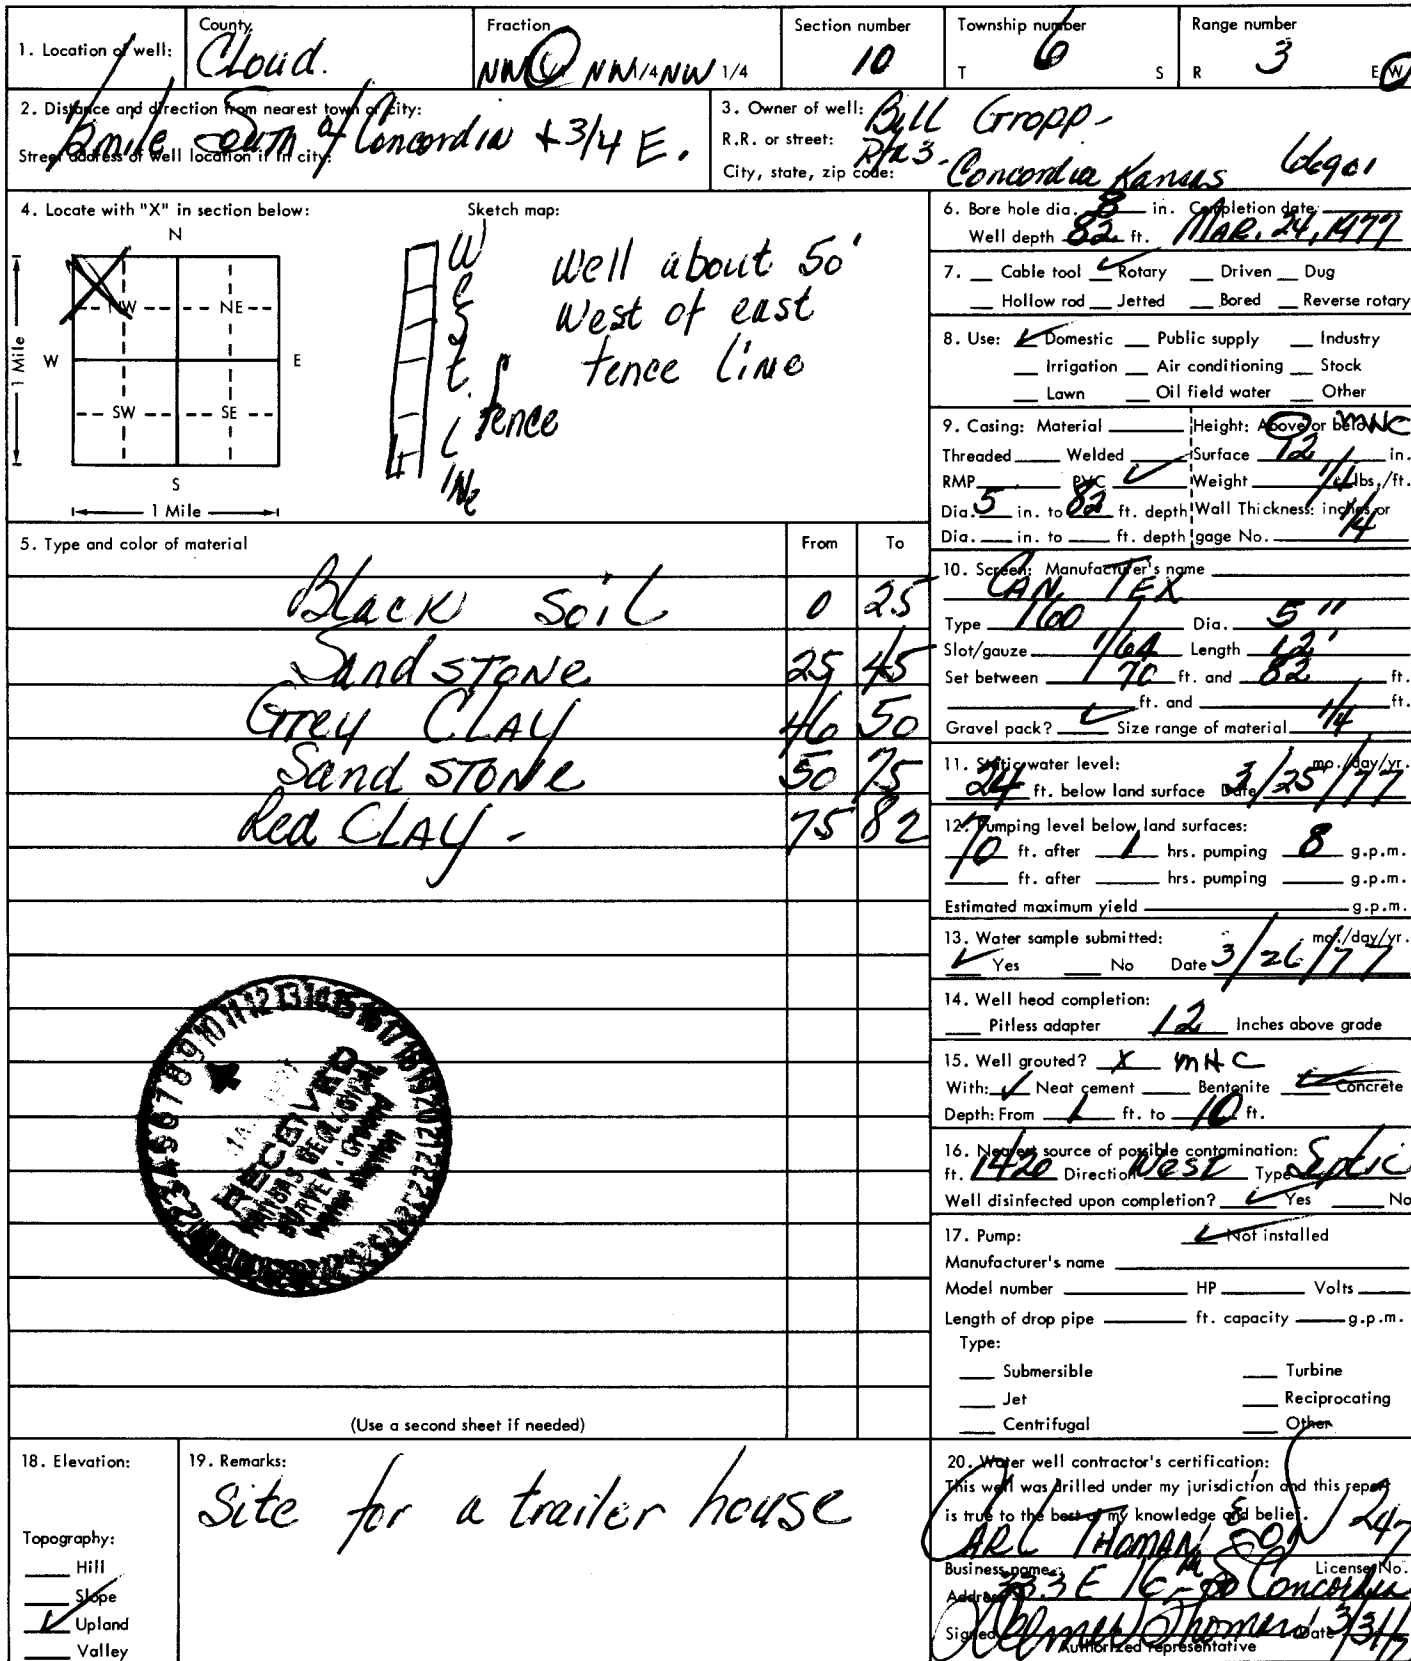 1. Location of well:
County
Cloud.
Fraction
NW NW 1/4 NW 1/4
Section number
10
Township number
T 6 S
Range number
R 3 E W
2. Distance and direction from nearest town or city:
mile South of Concordia + 3/4 E.
Street address of well location if in city:
3. Owner of well: Bill Gropp-
R.R. or street: RR3-
City, state, zip code: Concordia Kansas 66901
4. Locate with "X" in section below:
N
NW NE
W E
SW SE
S
1 Mile
1 Mile
Sketch map:
West LINe
fence
well about 50'
West of east
fence line
5. Type and color of material From To
Black Soil 0 25
Sandstone 25 45
Grey CLAY 46 50
Sandstone 50 75
Red CLAY - 75 82
RECEIVED
KANSAS GEOLOGICAL
SURVEY
(Use a second sheet if needed)
6. Bore hole dia. 8 in. Completion date
Well depth 82 ft. MAR. 24, 1977
7. Cable tool ✓ Rotary Driven Dug
Hollow rod Jetted Bored Reverse rotary
8. Use: ✓ Domestic Public supply Industry
Irrigation Air conditioning Stock
Lawn Oil field water Other
9. Casing: Material Height: Above or below MHC
Threaded Welded Surface 12 in.
RMP PVC ✓ Weight lbs./ft.
Dia. 5 in. to 82 ft. depth Wall Thickness: inches or
Dia. in. to ft. depth gage No. 1/4
10. Screen: Manufacturer's name
CAN TEX
Type 160 Dia. 5"
Slot/gauze 1/64 Length 12'
Set between 70 ft. and 82 ft.
ft. and ft.
Gravel pack? ✓ Size range of material 1/4
11. Static water level: mo./day/yr.
24 ft. below land surface Date 3/25/77
12. Pumping level below land surfaces:
70 ft. after 1 hrs. pumping 8 g.p.m.
ft. after hrs. pumping g.p.m.
Estimated maximum yield g.p.m.
13. Water sample submitted: mo./day/yr.
✓ Yes No Date 3/26/77
14. Well head completion:
Pitless adapter 12 Inches above grade
15. Well grouted? X MHC
With: ✓ Neat cement Bentonite Concrete
Depth: From 1 ft. to 10 ft.
16. Nearest source of possible contamination:
ft. Direction West Type Septic
Well disinfected upon completion? ✓ Yes No
17. Pump: ✓ Not installed
Manufacturer's name
Model number HP Volts
Length of drop pipe ft. capacity g.p.m.
Type:
Submersible Turbine
Jet Reciprocating
Centrifugal Other
18. Elevation:
Topography:
Hill
Slope
✓ Upland
Valley
19. Remarks:
Site for a trailer house
20. Water well contractor's certification:
This well was drilled under my jurisdiction and this report
is true to the best of my knowledge and belief.
CARL THOMAN & SON 247
Business name License No.
Address 333 E 16th Concordia
Signed Thoman Date 3/31/7
Authorized representative